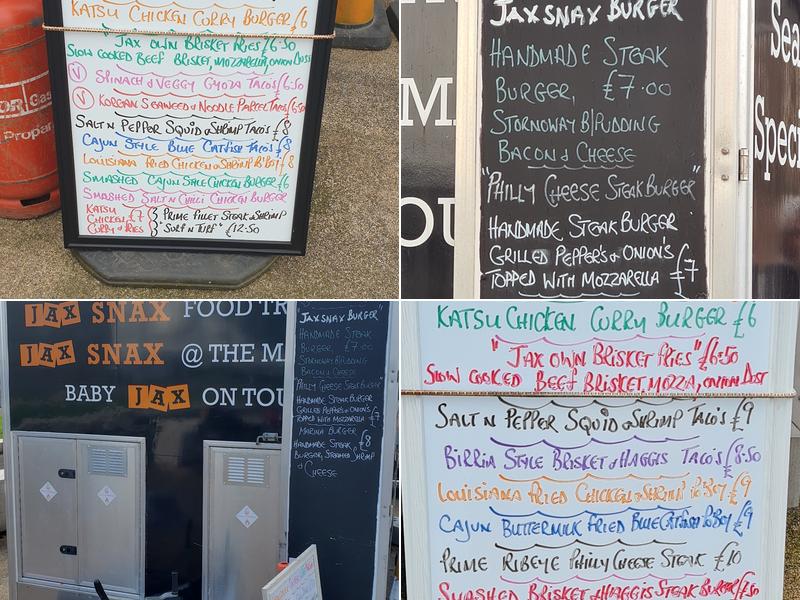 KATSU CHICKEN CURRY BURGER £6
"JAX OWN BRISKET FRIES" £6.50
SLOW COOKED BEEF BRISKET, MOZZARELLA, ONION DUST
V SPINACH & VEGGY GYOZA TACO'S £6.50
V KOREAN SEAWEED & NOODLE PARCEL TACO'S £6.50
SALT N PEPPER SQUID & SHRIMP TACO'S £8
CAJUN STYLE BLUE CATFISH TACO'S £8
LOUISIANA FRIED CHICKEN & SHRIMP PO'BOY £8
SMASHED CAJUN SALE CHICKEN BURGER £6
SMASHED SALT N CHILLI CHICKEN BURGER
KATSU CHICKEN £7 CURRY & FRIES
PRIME FILLET STEAK & SHRIMP
"SURF N TURF" £12.50
OR Gas
Propan
JAXSNAX BURGER
HANDMADE STEAK
BURGER, £7.00
STORNOWAY B/PUDDING
BACON & CHEESE
"PHILLY CHEESE STEAK BURGER"
HANDMADE STEAK BURGER
GRILLED PEPPER'S & ONION'S
TOPPED WITH MOZZARELLA £7
M
OU
Sea
Speci
JAX SNAX FOOD TR
JAX SNAX @ THE MA
BABY JAX ON TOU
JAXSNAX BURGER"
HANDMADE STEAK
BURGER, £7.00
STORNOWAY B/PUDDING
BACON & CHEESE
"PHILLY CHEESE STEAK BURGER"
HANDMADE STEAK BURGER
GRILLED PEPPER'S & ONION'S
TOPPED WITH MOZZARELLA £7
MARINA BURGER
HANDMADE STEAK £8
BURGER, STEAMED SHRIMP
& CHEESE
KATSU CHICKEN CURRY BURGER £6
"JAX OWN BRISKET FRIES" £6.50
SLOW COOKED BEEF BRISKET, MOZZA, ONION DUST
SALT N PEPPER SQUID & SHRIMP TACO'S £9
BIRRIA STYLE BRISKET & HAGGIS TACO'S £8.50
LOUISIANA FRIED CHICKEN & SHRIMP PO'BOY £9
CAJUN BUTTERMILK FRIED BLUE CATFISH PO'BOY £9
PRIME RIBEYE PHILLY CHEESE STEAK £10
SMASHED BRISKET & HAGGIS STEAK BURGER